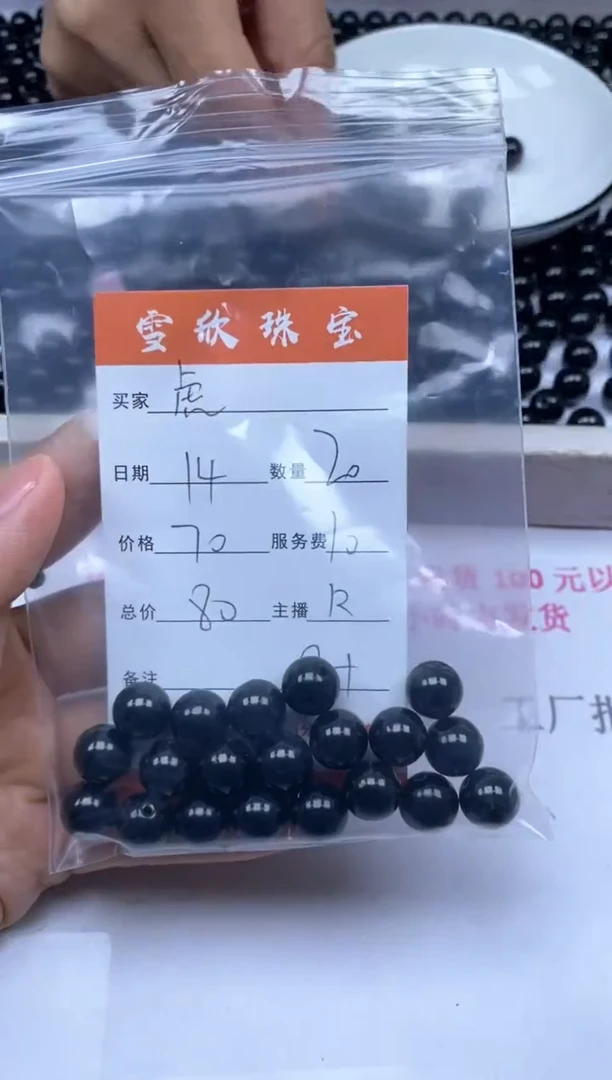 雪欣珠宝
买家 虎
日期 14 数量 20
价格 70 服务费 10
总价 80 主播 R
备注
100元以
发货
工厂